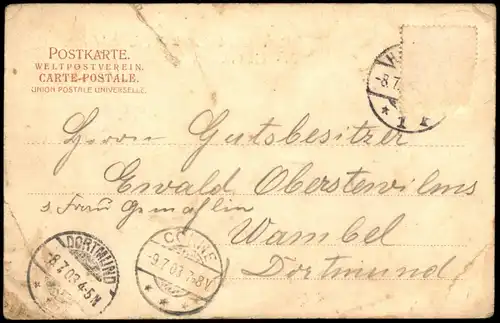 POSTKARTE.
WELTPOSTVEREIN.
CARTE-POSTALE.
UNION POSTALE UNIVERSELLE.
-8.7.
* 1 k
Herrn Gutsbesitzer
Ewald Obersterwilms
s. Frau Gemahlin
Wambel
Dortmund
DORTMUND
-8.7.03.4-5N
*
-9.7.03.7-8V
* * *